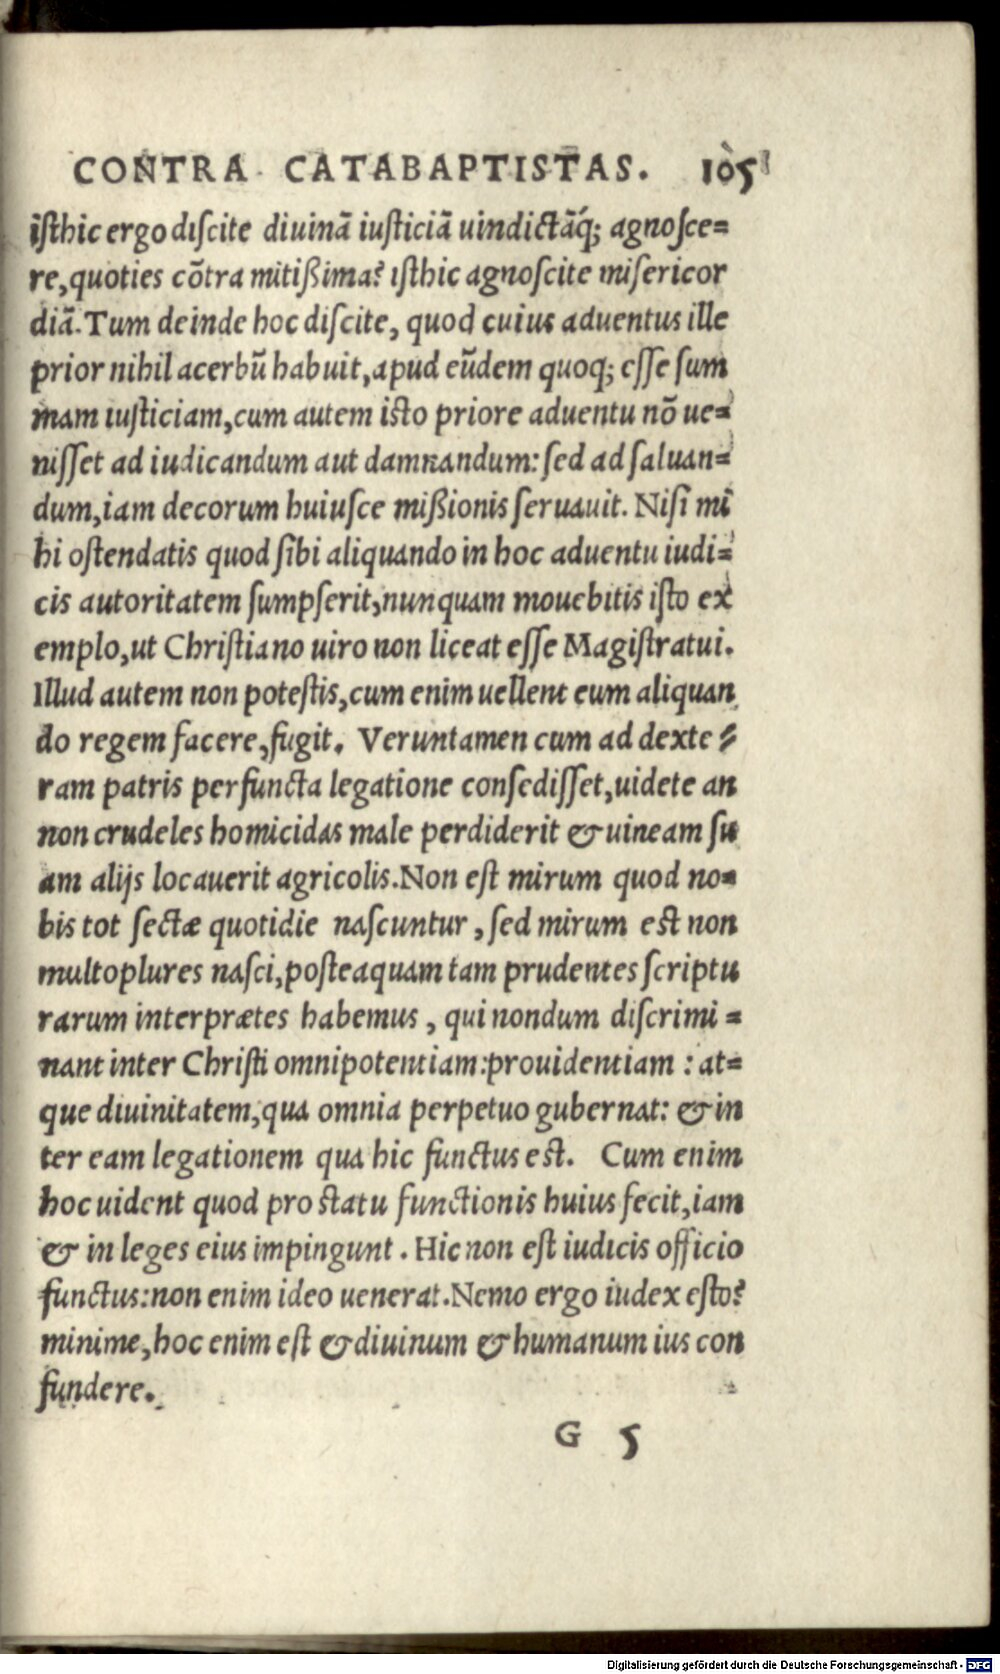 CONTRA CATABAPTISTAS. 105
iſthic ergo diſcite diuinā iuſticiā uindictāq́; agnoſce=
re, quoties cōtra mitißima? iſthic agnoſcite miſericor
diā. Tum deinde hoc diſcite, quod cuius aduentus ille
prior nihil acerbū habuit, apud eūdem quoq; eſſe ſum
mam iuſticiam, cum autem iſto priore aduentu nō ue=
niſſet ad iudicandum aut damnandum: ſed ad ſaluan=
dum, iam decorum huiuſce mißionis ſeruauit. Niſi mi
hi oſtendatis quod ſibi aliquando in hoc aduentu iudi=
cis autoritatem ſumpſerit, nunquam mouebitis iſto ex
emplo, ut Chriſtiano uiro non liceat eſſe Magiſtratui.
Illud autem non poteſtis, cum enim uellent eum aliquan
do regem facere, fugit. Veruntamen cum ad dexte=
ram patris perfuncta legatione conſediſſet, uidete an
non crudeles homicidas male perdiderit & uineam ſu
am alijs locauerit agricolis. Non eſt mirum quod no=
bis tot ſectæ quotidie naſcuntur, ſed mirum eſt non
multo plures naſci, poſteaquam tam prudentes ſcriptu
rarum interprætes habemus, qui nondum diſcrimi=
nant inter Chriſti omnipotentiam: prouidentiam: at=
que diuinitatem, qua omnia perpetuo gubernat: & in
ter eam legationem qua hic functus eſt. Cum enim
hoc uident quod pro ſtatu functionis huius fecit, iam
& in leges eius impingunt. Hic non eſt iudicis officio
functus: non enim ideo uenerat. Nemo ergo iudex eſto?
minime, hoc enim eſt & diuinum & humanum ius con
fundere.
G 5
Digitalisierung gefördert durch die Deutsche Forschungsgemeinschaft - DFG